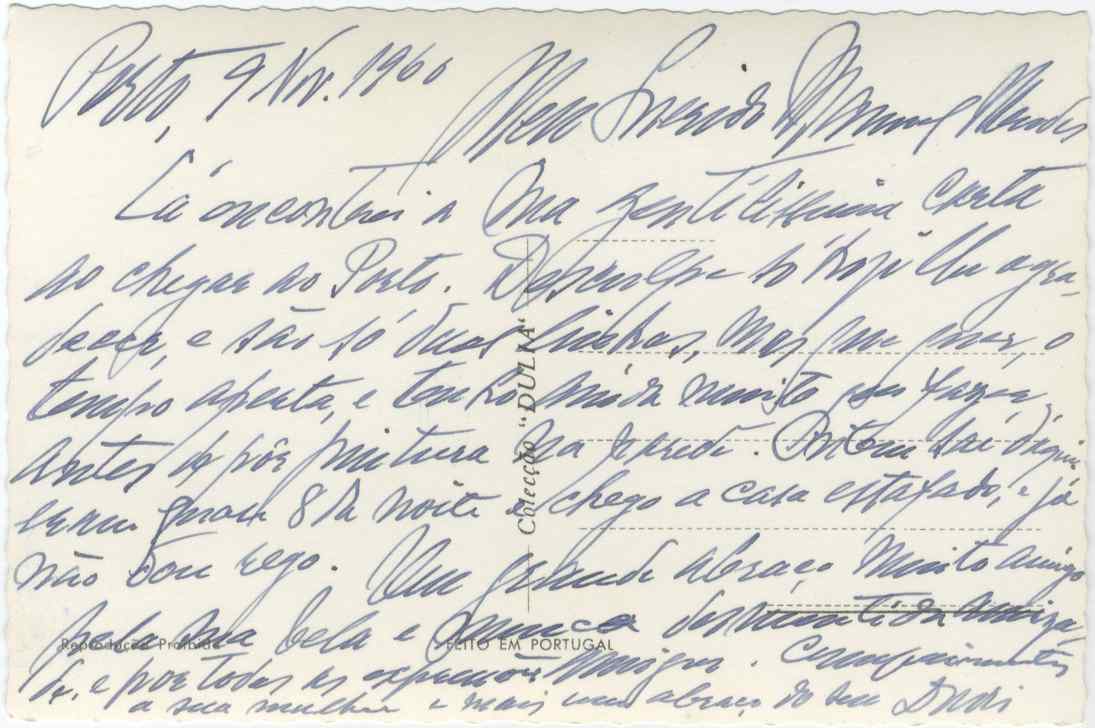 Porto, 9 Nov. 1960
Meu Querido Manuel Mendes
Cá encontrei a sua gentilíssima carta
ao chegar ao Porto. Desculpe só hoje lhe agra-
decer, e são só duas linhas, mas que quer, o
tempo aperta, e tenho ainda muito que fazer,
antes de pôr pintura na parede. Ontem saí daqui
eram quase 8 da noite e chego a casa estafado, e já
não dou rego. Um grande abraço muito amigo
pela sua bela e nunca desmentida amiza-
de, e por todas as expressões amigas. Cumprimentos
a sua mulher e mais um abraço do seu
Colecção "DULIA"
Reprodução Proibida
FEITO EM PORTUGAL